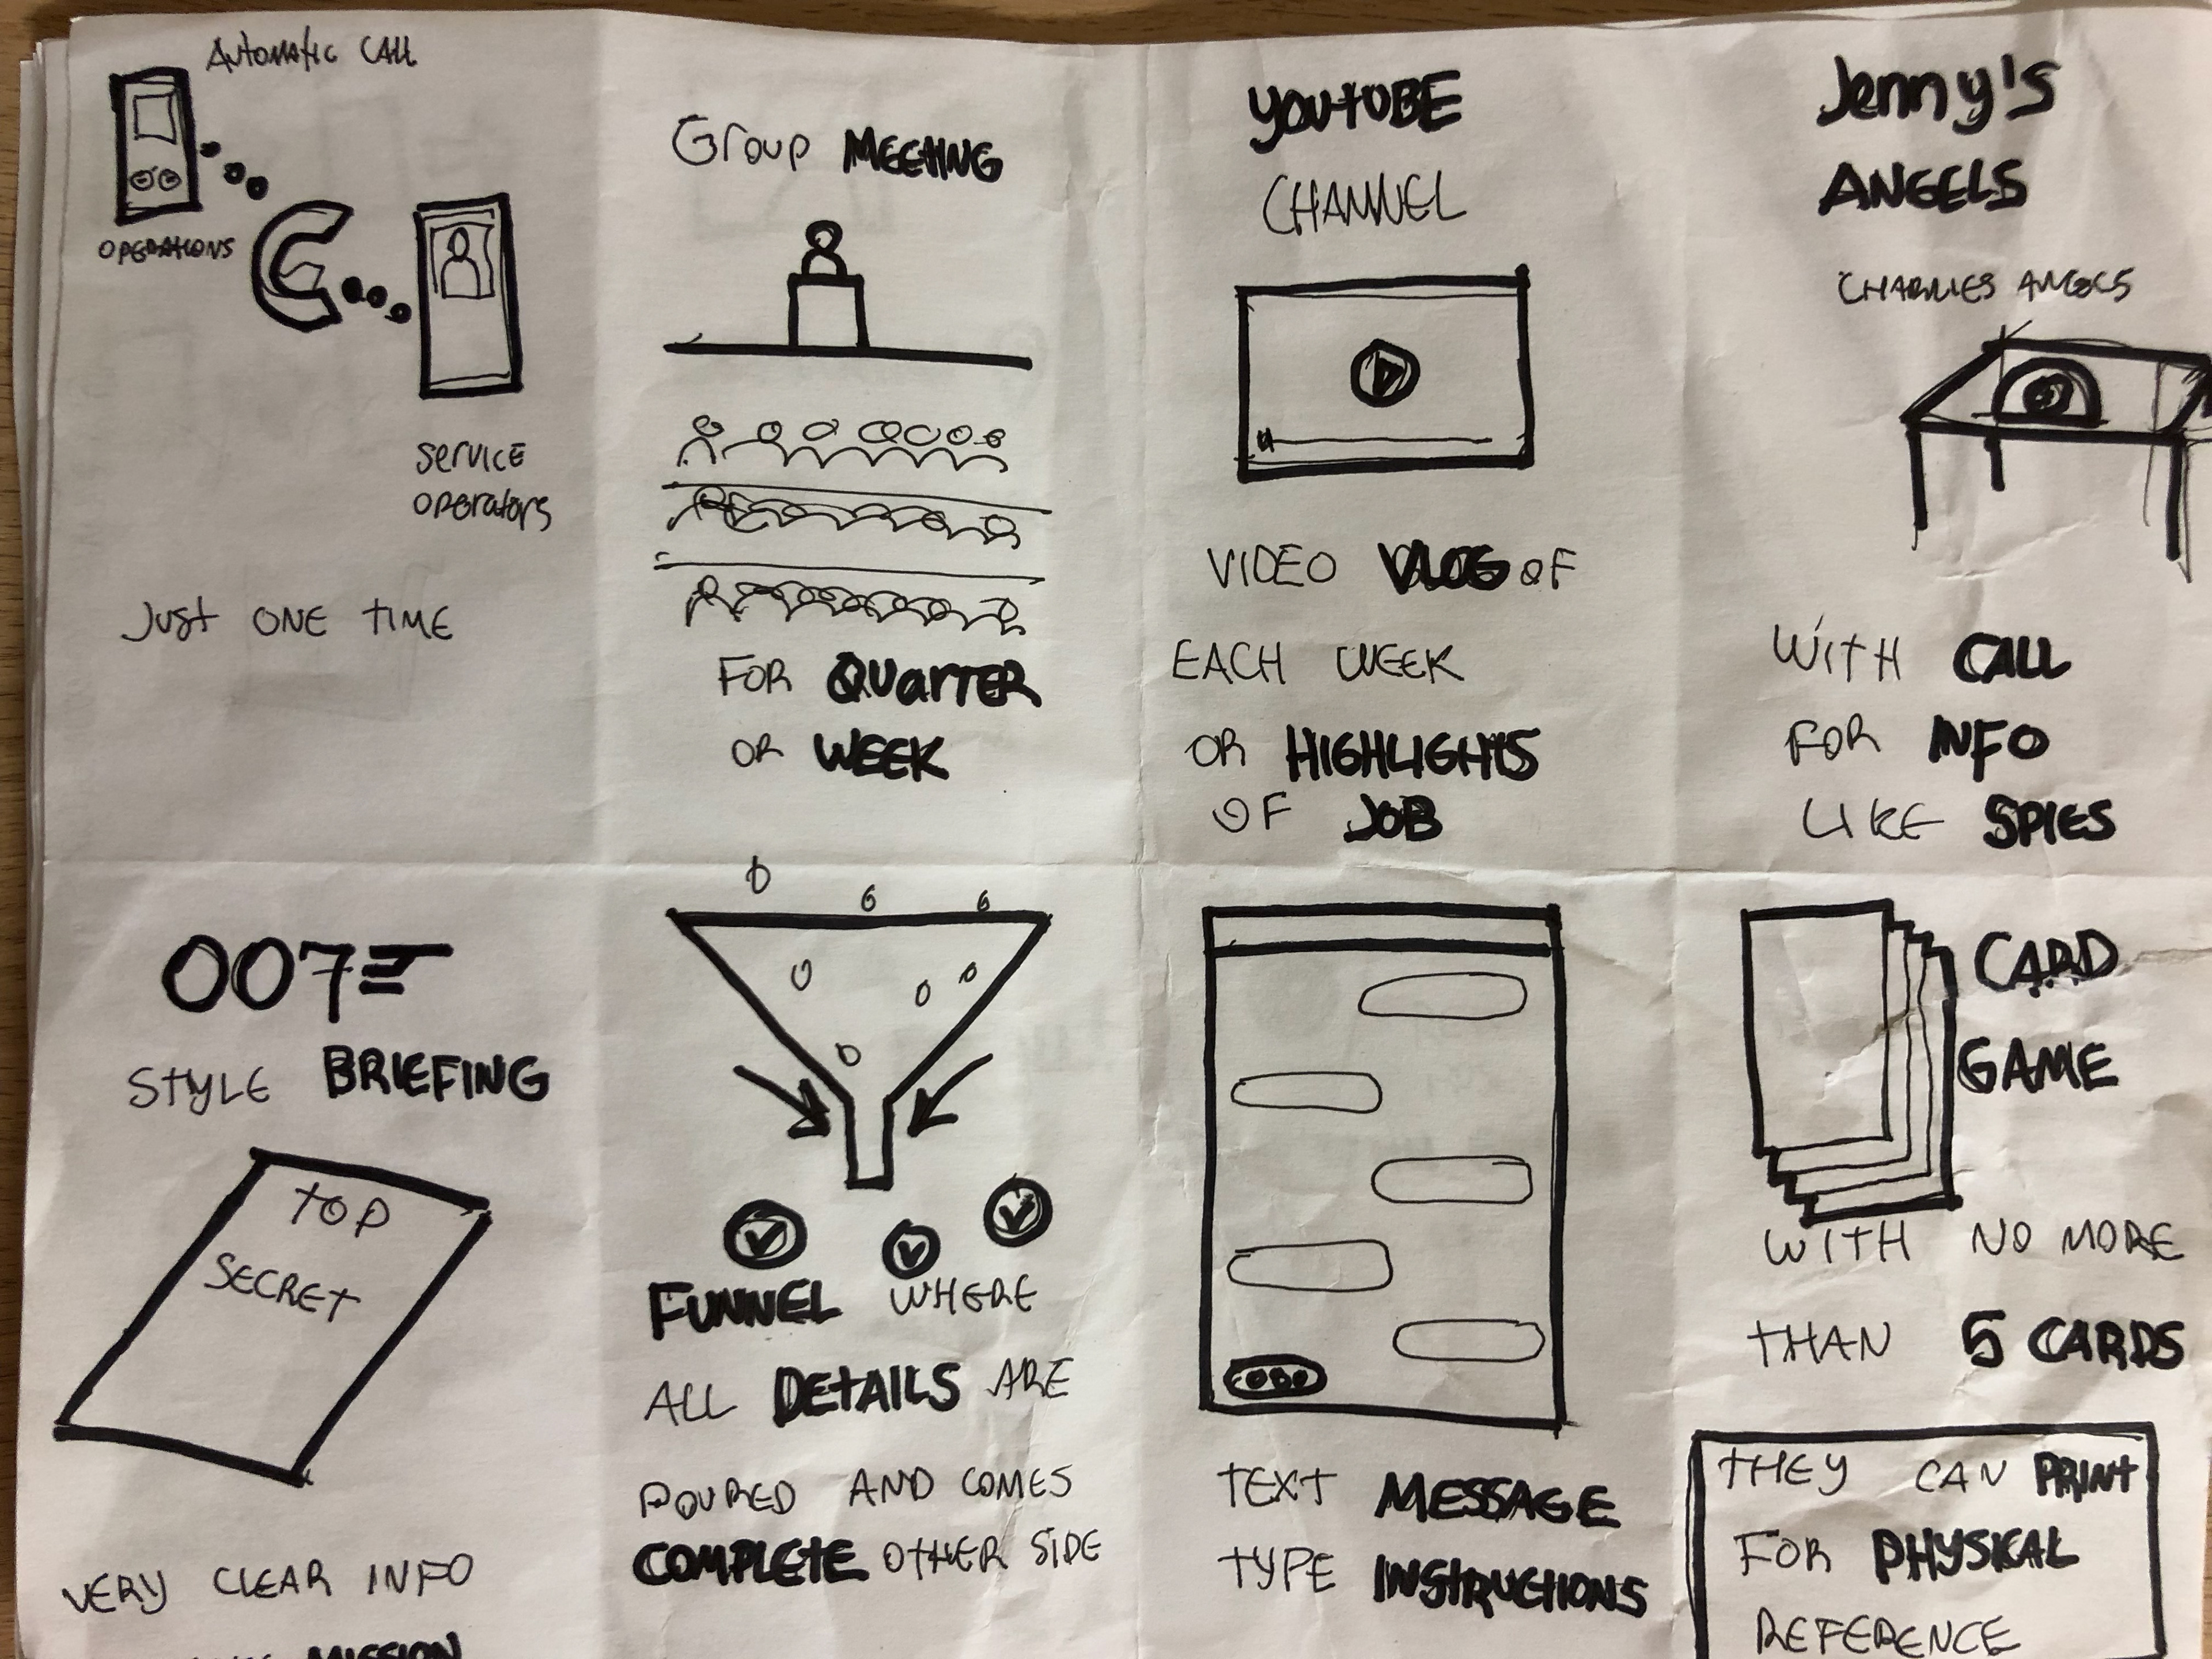 AUTOMATIC CALL
OPERATIONS
SERVICE
OPERATORS
JUST ONE TIME
GROUP MEETING
FOR QUARTER
OR WEEK
YOUTUBE
CHANNEL
VIDEO VLOG OF
EACH WEEK
OR HIGHLIGHTS
OF JOB
Jenny's
ANGELS
CHARLIES ANGELS
WITH CALL
FOR INFO
LIKE SPIES
007
STYLE BRIEFING
TOP
SECRET
VERY CLEAR INFO
MISSION
FUNNEL WHERE
ALL DETAILS ARE
POURED AND COMES
COMPLETE OTHER SIDE
TEXT MESSAGE
TYPE INSTRUCTIONS
CARD
GAME
WITH NO MORE
THAN 5 CARDS
THEY CAN PRINT
FOR PHYSICAL
REFERENCE